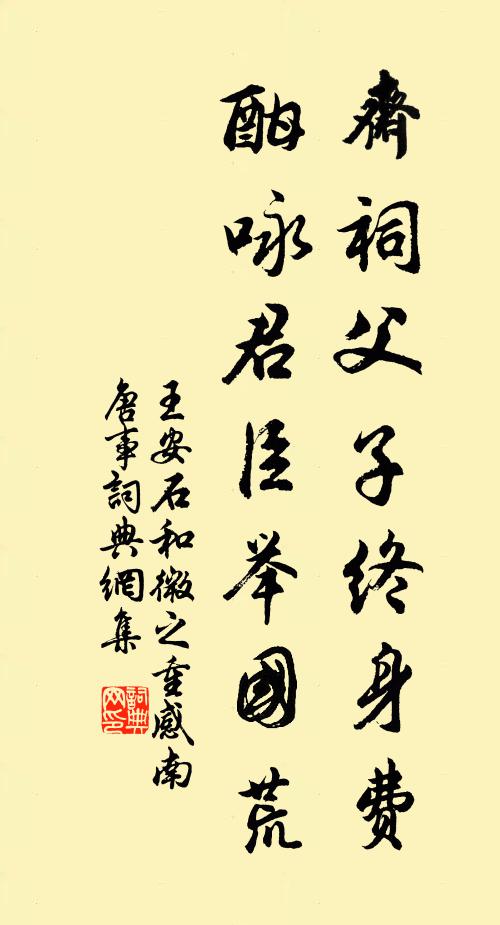 齋祠父子終身費
酣咏君臣举國荒
王安石和微之重感南
唐事詞典網集
詞典
网印